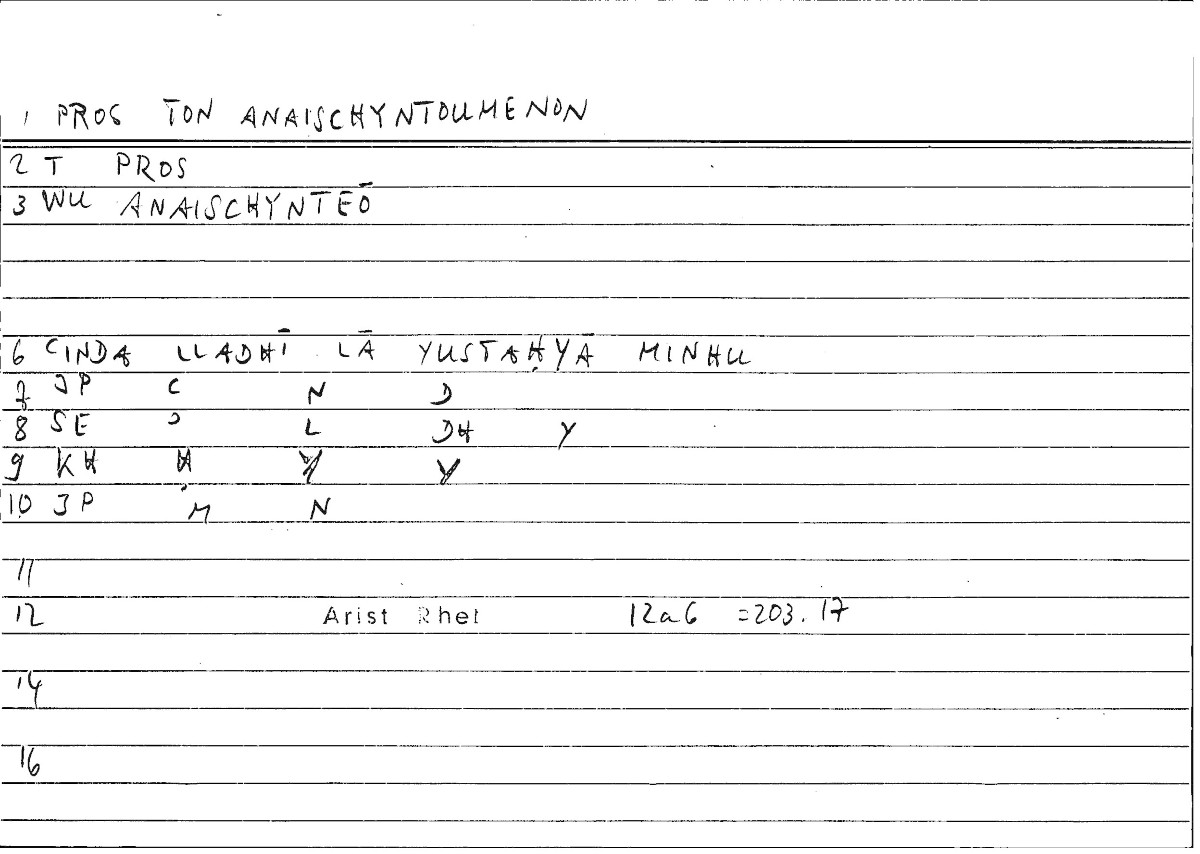 1 PROS TON ANAISCHYNTOUMENON
2 T PROS
3 WU ANAISCHYNTEŌ
6 CINDA LLADHĪ LĀ YUSTAḤYĀ MINHU
7 JP C N D
8 SE ʾ L DH Y
9 KH Ḥ Y Y
10 JP M N
11
12 Arist Rhet 12a6 =203.17
14
16